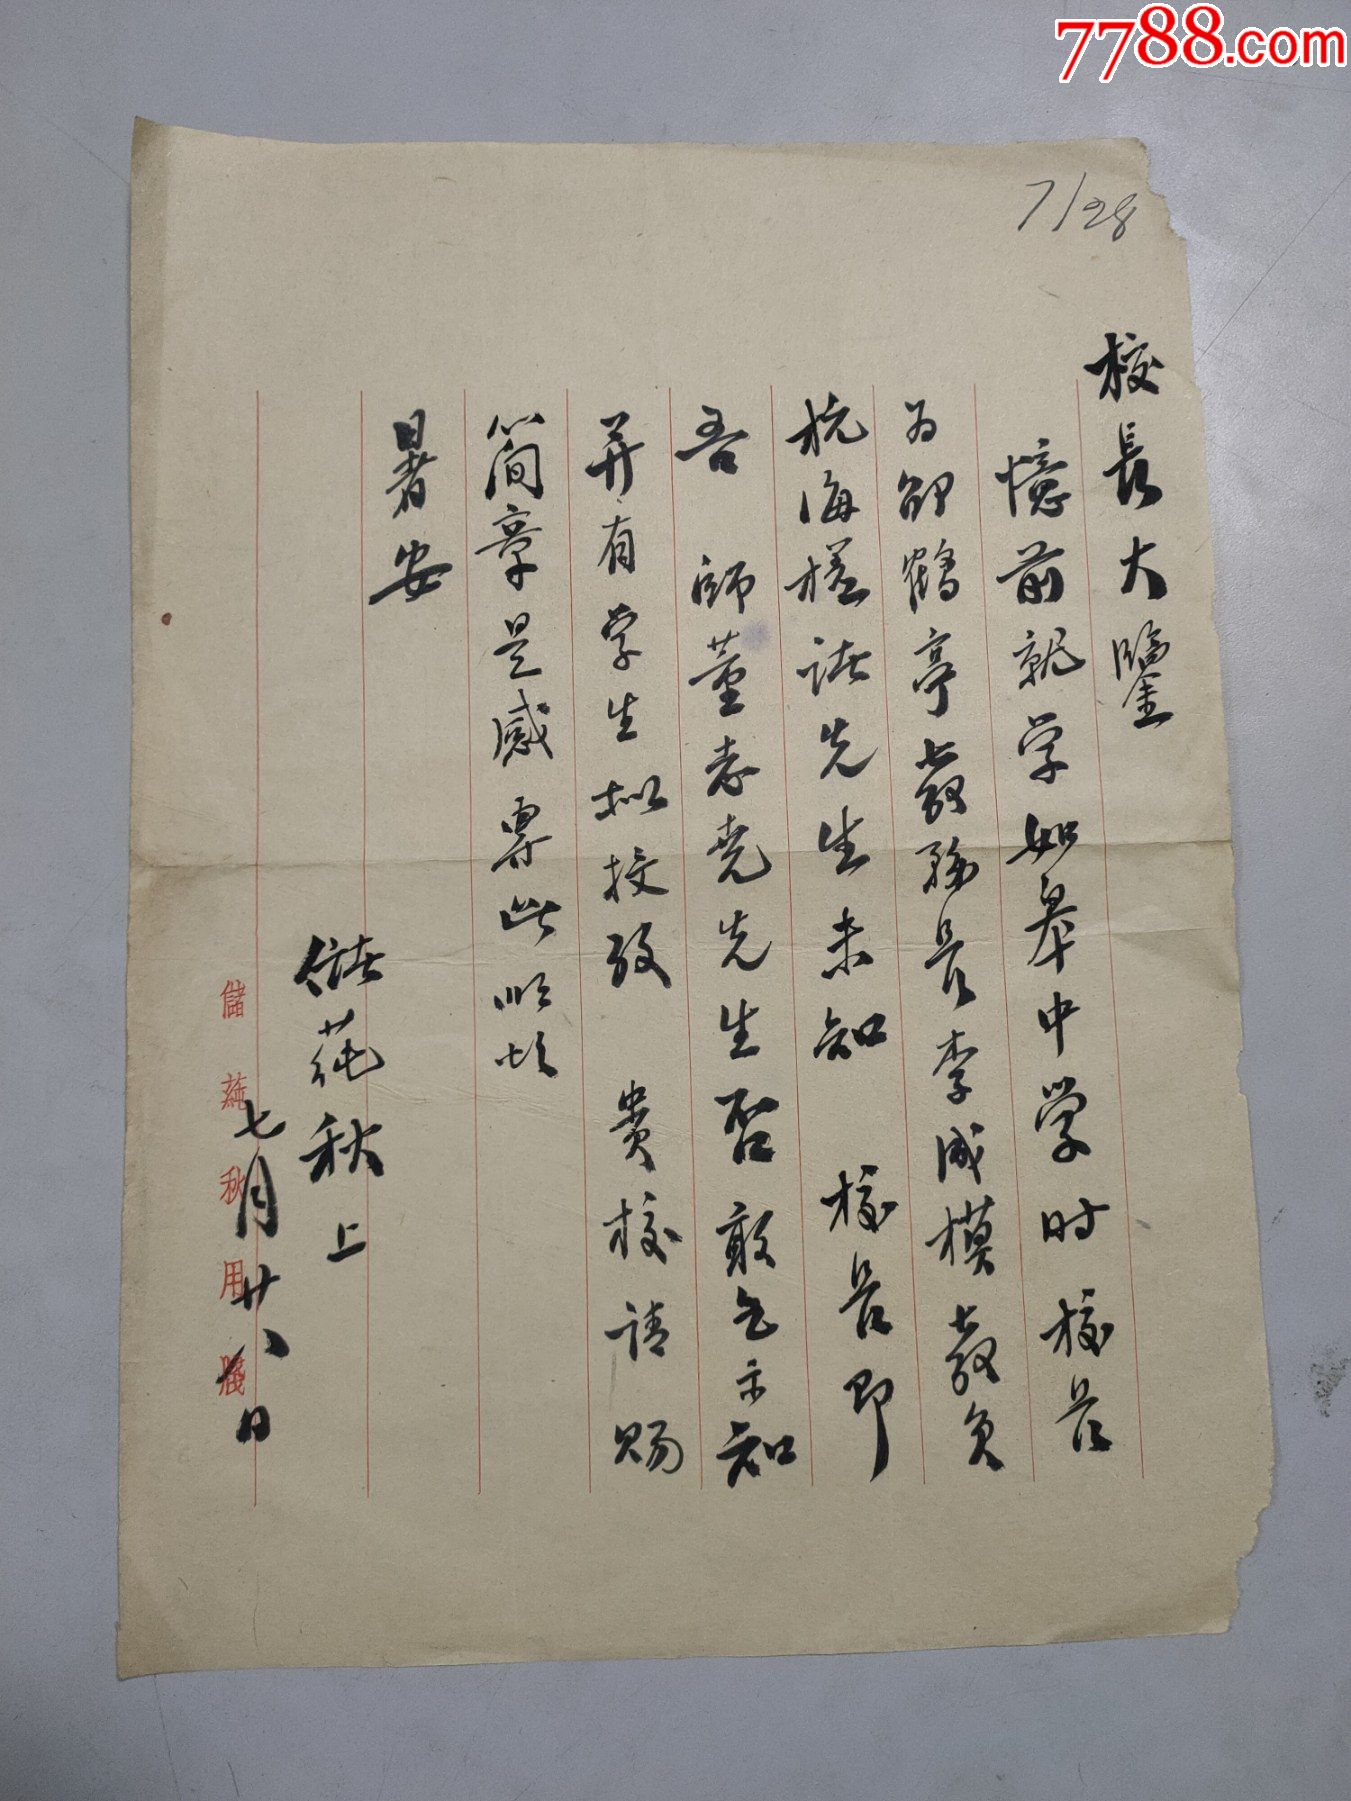 7788.com
7/28
校長大鑒
憶前就学如皋中学时校长
为鹤亭教務长李成模教员
杭海槎諸先生未知 校长即
吾 師董志尧先生否敢乞示知
并有学生拟投攷 贵校请赐
简章是感專此順頌
暑安
储莼秋上
七月廿八日
儲蒓秋用牋